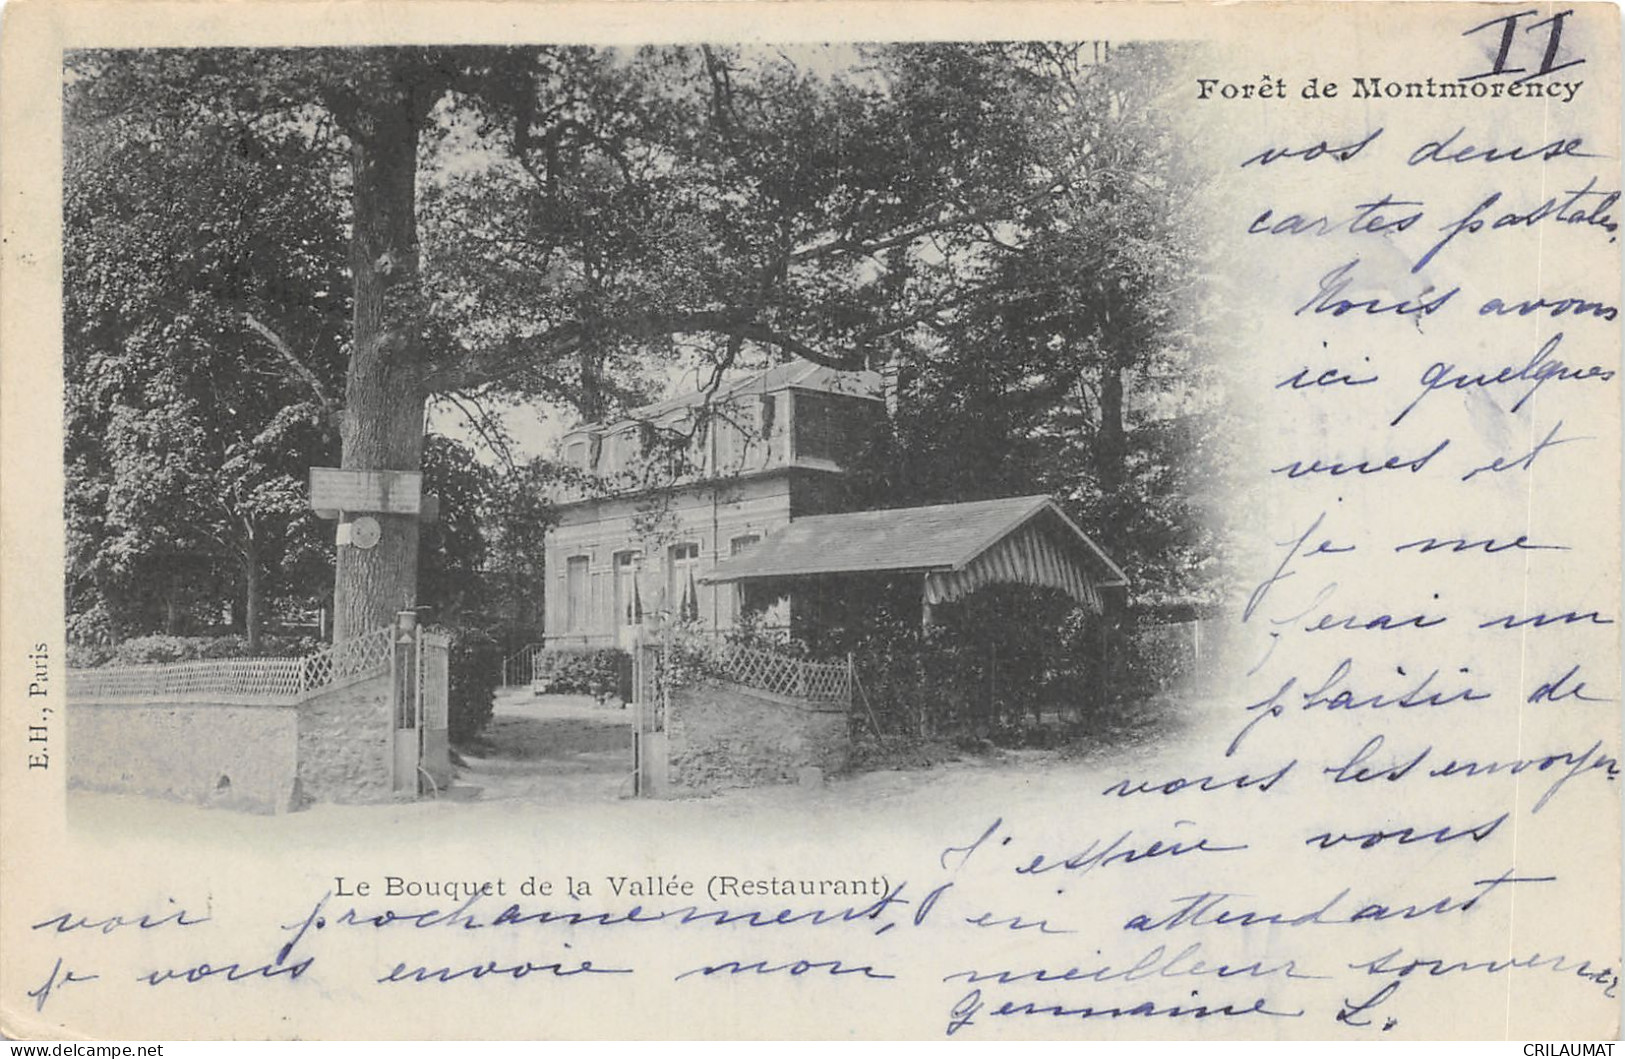 II
Forêt de Montmorency
vos deuxe
cartes postales,
Nous avons
ici quelques
vues et
je me
ferai un
plaisir de
vous les envoyer
J'espère vous
Le Bouquet de la Vallée (Restaurant)
voir prochainement, en attendant
je vous envoie mon meilleur souvenir
Germaine L.
E. H., Paris
CRILAUMAT